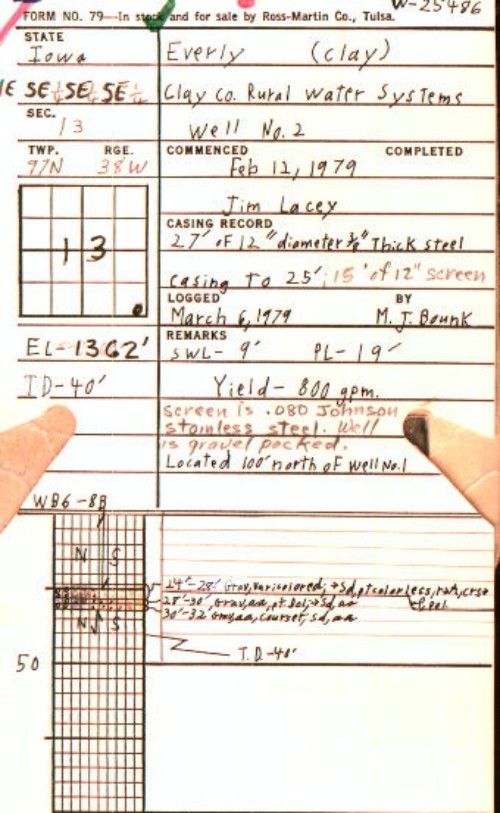 W-25486
FORM NO. 79—In stock and for sale by Ross-Martin Co., Tulsa.
STATE
Iowa
Everly (clay)
SE¼ SE¼ SE¼
Clay Co. Rural Water Systems
SEC.
13
Well No. 2
TWP. RGE.
97N 38W
COMMENCED COMPLETED
Feb 12, 1979
Jim Lacey
13
CASING RECORD
27' OF 12" diameter ⅜" Thick steel
casing To 25'; 15' of 12" screen
LOGGED BY
March 6, 1979 M. J. Bounk
EL-1362'
REMARKS
SWL- 9' PL- 19'
TD-40'
Yield- 800 gpm.
screen is .080 Johnson
stainless steel. Well
is gravel packed.
Located 100' north of well No.1
WB6-8B
N S
24'-28' Grav, varicolored; +Sd, pt colorless,
28'-30', Grav, aa, pt. Dol; +Sd, aa
30'-32' Grav, aa, courser, Sd, aa
N S
T.D.-40'
50